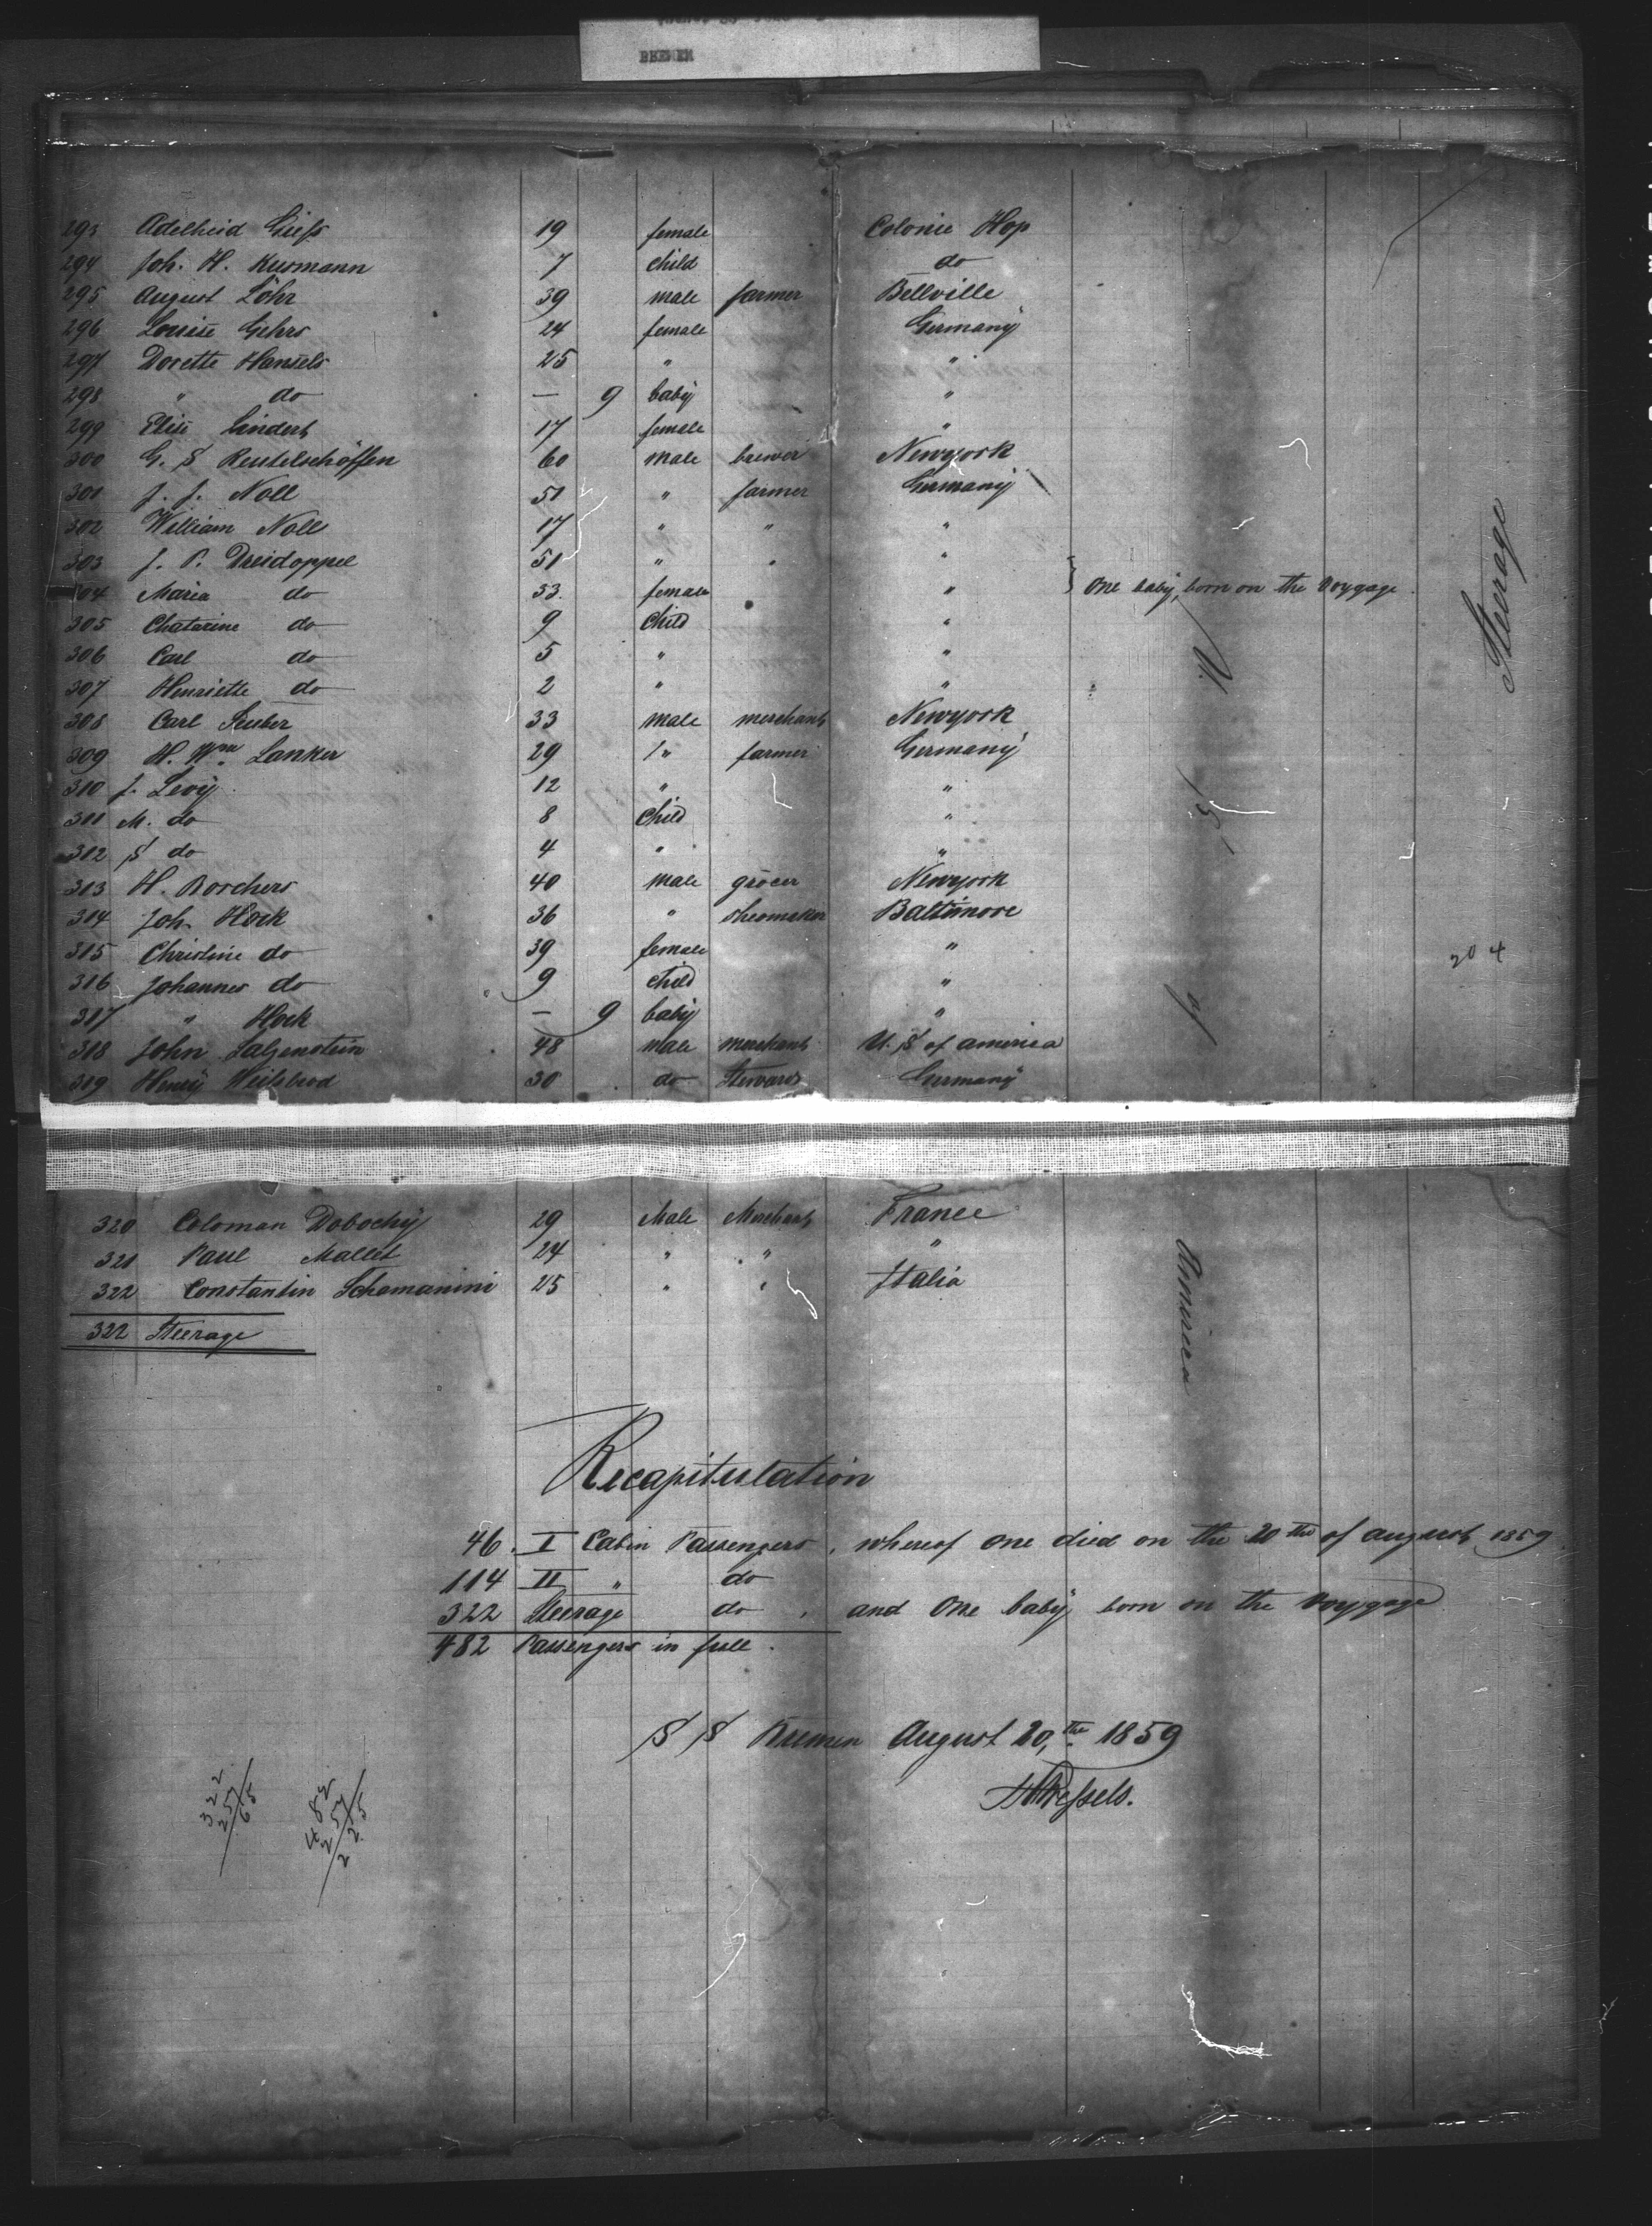 BREMEN
293 Adelheid Giess 19 female Colonie Hop
294 Joh. H. Kusmann 7 child do
295 August Löhr 39 male farmer Bellville
296 Louise Gehrs 24 female Germany
297 Dorette Hansels 25 " "
298 " do — 9 baby "
299 Elise Lindert 17 female "
300 G. S Reutelschöffen 60 male brewer Newyork
301 J. J. Noll 51 " farmer Germany
302 William Noll 17 " " "
303 J. P. Dreidoppel 51 " " "
304 Maria do 33. female " } One baby, born on the voygage
305 Chatarine do 9 Child "
306 Carl do 5 " "
307 Henriette do 2 " "
308 Carl Seuber 33 male merchant Newyork
309 H. Wm. Lanker 29 " farmer Germany
310 J. Levy 12 " "
311 M. do 8 Child "
312 S do 4 " "
313 H. Borchers 40 male grocer Newyork
314 Joh. Hock 36 " shoemaker Baltimore
315 Christine do 39 female "
316 Johannes do 9 child "
317 " Hock — 9 baby "
318 John Salzenstein 48 male merchant U. S of america
319 Henry Heilbrod 30 do Steward Germany
Steerage
204
U. S. of America
320 Coloman Dobochy 29 Male Merchant France
321 Paul Mallet 24 " " "
322 Constantin Schamanini 25 " " Italia
322 Steerage
Recapitulation
46. I Cabin Passengers, whereof one died on the 20the of august 1859
114 II " do
322 Steerage do, and One baby born on the voygage
482 Passengers in full.
S S Bremen August 20,the 1859
HWessels.
322
257
65
482
257
225